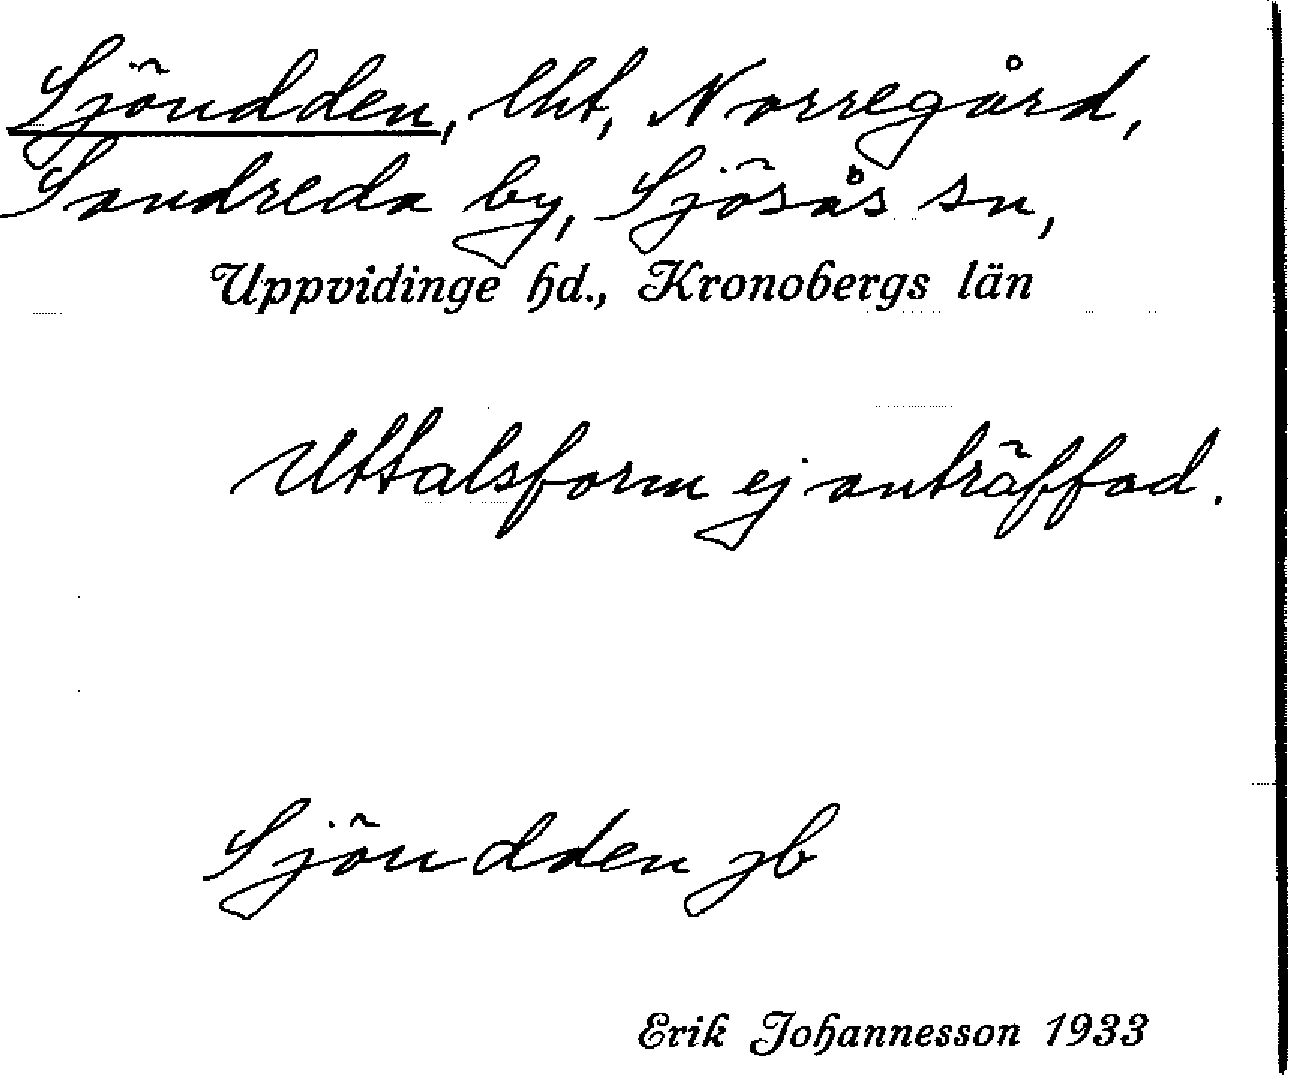 Sjöudden, lht, Norregård,
Sandreda by, Sjösås sn,
Uppvidinge hd., Kronobergs län
Uttalsform ej anträffad.
Sjöudden jb
Erik Johannesson 1933